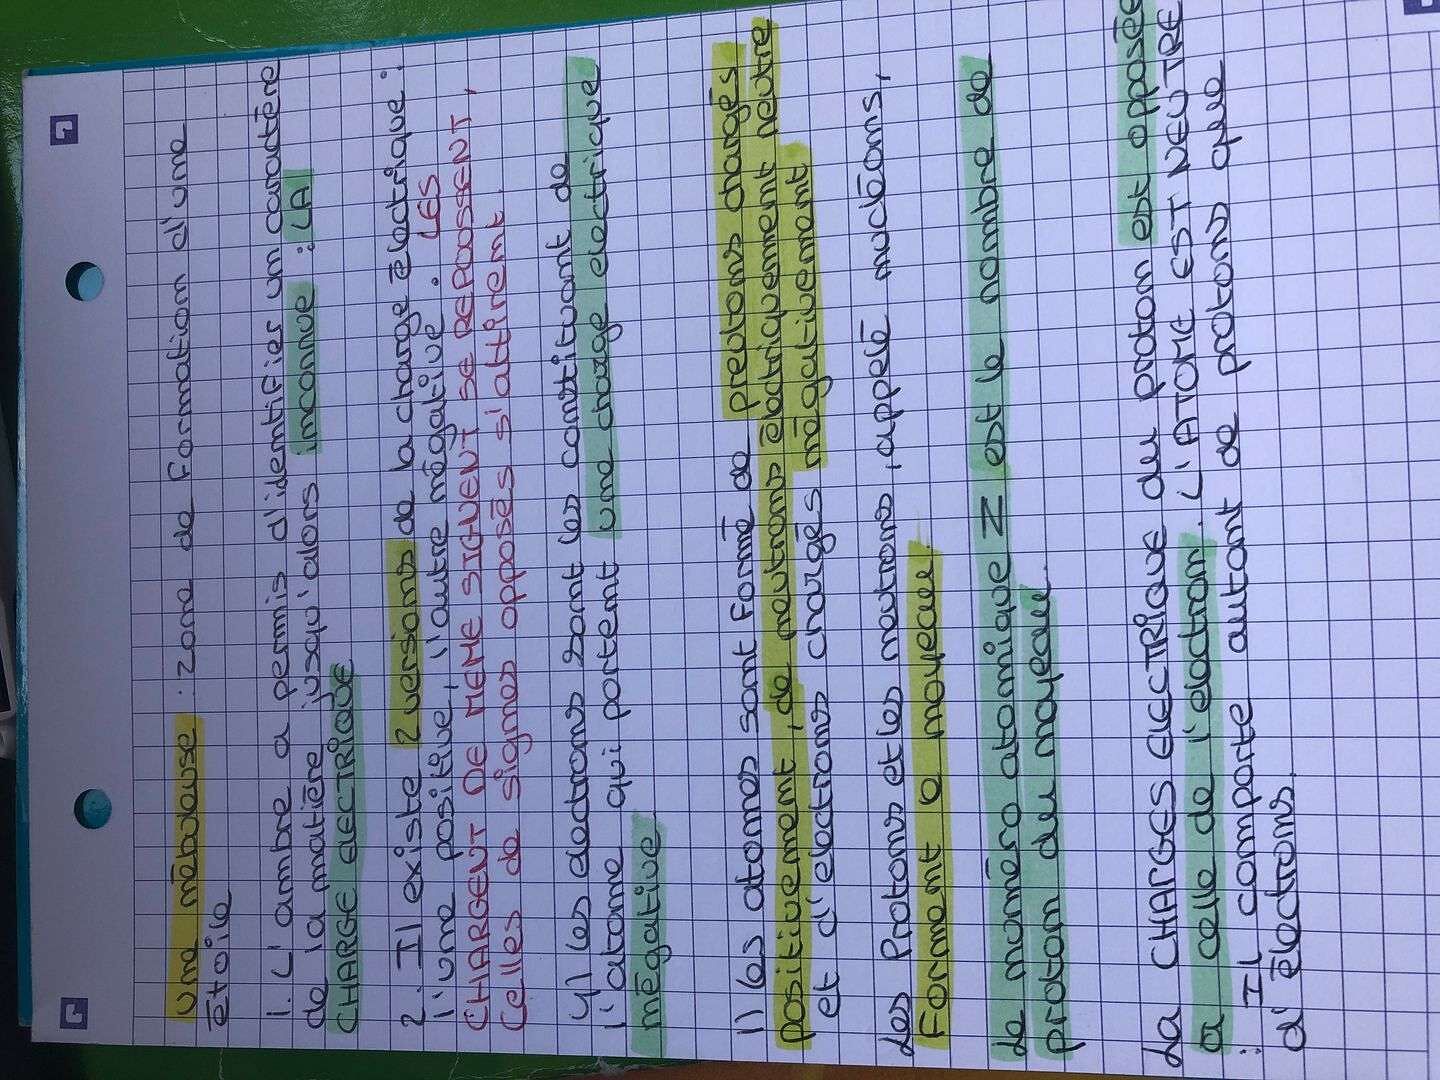 Une nébuleuse : zone de formation d'une
étoile
1. L'ambre a permis d'identifier un caratère
de la matière jusqu'alors inconnue : LA
CHARGE ELECTRIQUE
2. Il existe 2 versions de la charge électrique :
l'une positive, l'autre négative. LES
CHARGENT DE MEME SIGUENT SE REPOUSSENT,
Celles de signes opposés s'attirent.
4) les electrons sont les constituant de
l'atome qui portent une charge electrique
négative
1) les atomes sont formé de preutons chargés
positivement, de neutrons électriquement neutre
et d'electrons chargés négativement
Les Protons et les neutrons, appelé nucléons,
Forment e noyeau.
Le numéro atomique Z est le nombre de
proton du noyeau.
La CHARGES ELECTRIQUE du proton est opposée
a celle de l'electron. L'ATOME EST NEUTRE
: IL comporte autant de protons que
d'électrons.